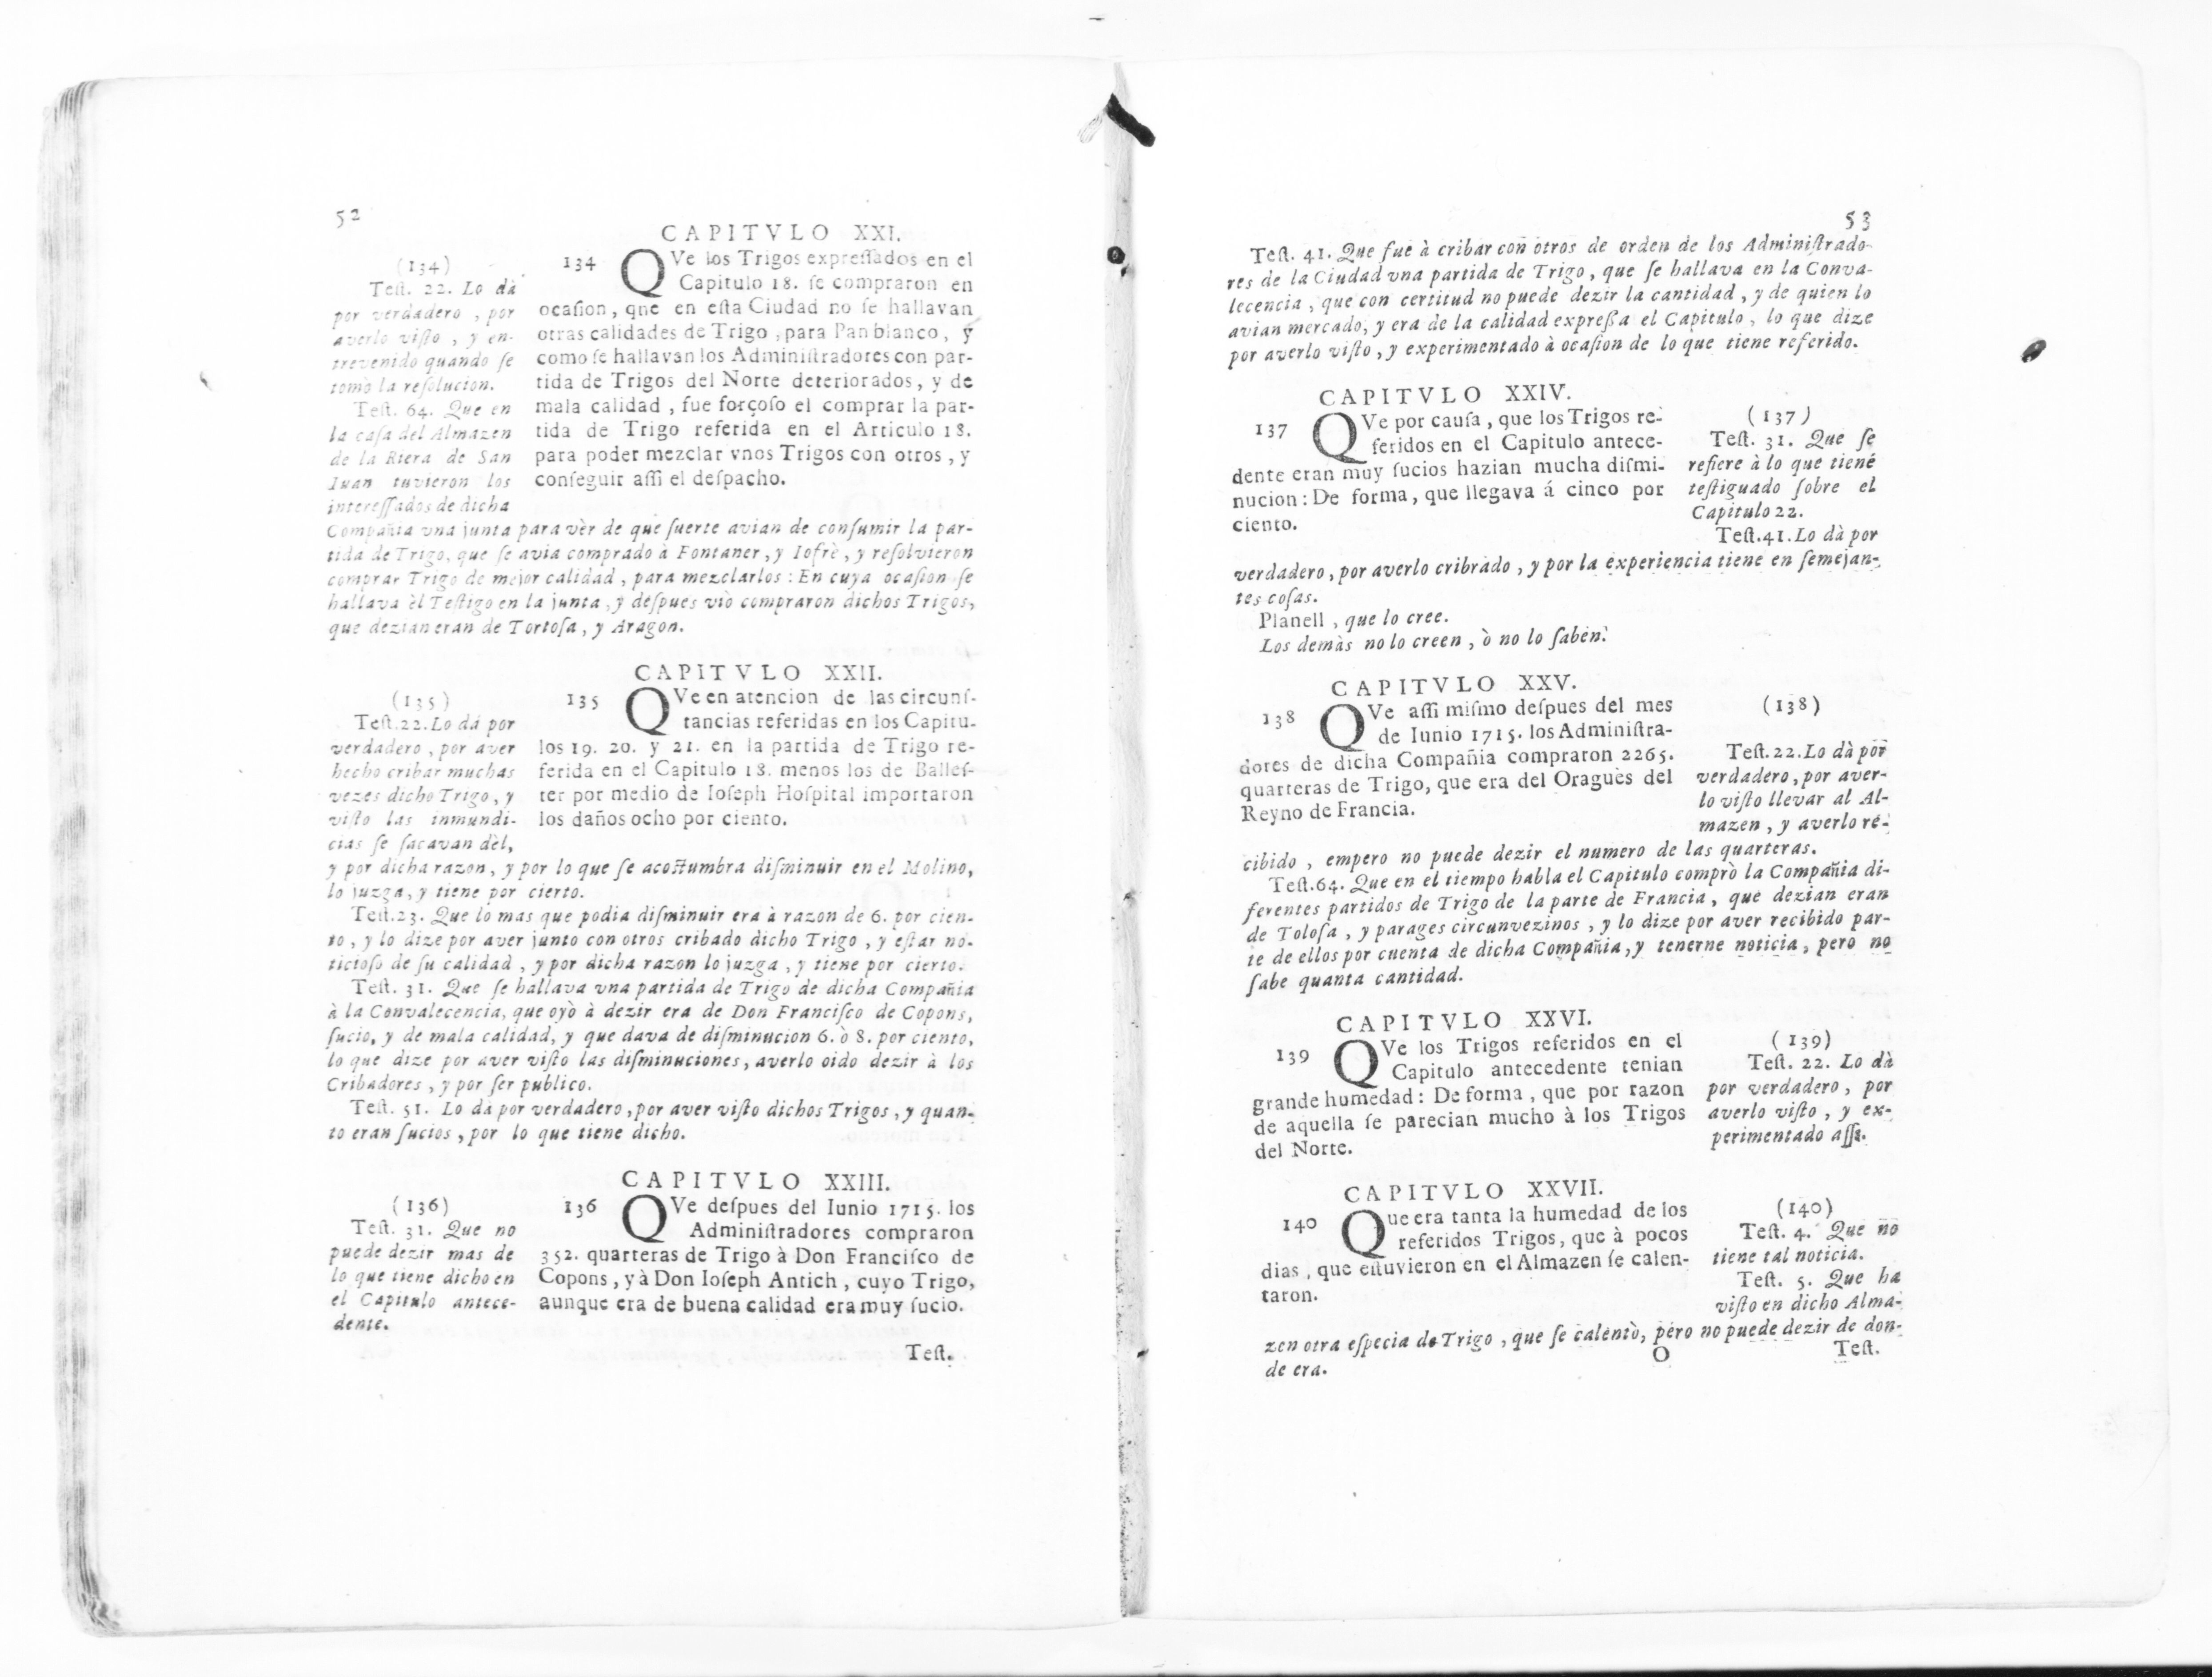 52
CAPITVLO XXI.
134 QVe los Trigos expreſſados en el
Capitulo 18. ſe compraron en
ocaſion, qne en eſta Ciudad no ſe hallavan
otras calidades de Trigo, para Pan blanco, y
como ſe hallavan los Adminiſtradores con par-
tida de Trigos del Norte deteriorados, y de
mala calidad, fue forçoſo el comprar la par-
tida de Trigo referida en el Articulo 18.
para poder mezclar vnos Trigos con otros, y
conſeguir aſſi el deſpacho.
(134)
Teſt. 22. Lo dà
por verdadero, por
averlo viſto, y en-
trevenido quando ſe
tomò la reſolucion.
Teſt. 64. Que en
la caſa del Almazen
de la Riera de San
Iuan tuvieron los
intereſſados de dicha
Compañia vna junta para vèr de què ſuerte avian de conſumir la par-
tida de Trigo, que ſe avia comprado à Fontaner, y Iofrè, y reſolvieron
comprar Trigo de mejor calidad, para mezclarlos: En cuya ocaſion ſe
hallava èl Teſtigo en la junta, y deſpues viò compraron dichos Trigos,
que dezian eran de Tortoſa, y Aragon.
CAPITVLO XXII.
135 QVe en atencion de las circunſ-
tancias referidas en los Capitu-
los 19. 20. y 21. en la partida de Trigo re-
ferida en el Capitulo 18. menos los de Balleſ-
ter por medio de Ioſeph Hoſpital importaron
los daños ocho por ciento.
(135)
Teſt.22. Lo dà por
verdadero, por aver
hecho cribar muchas
vezes dicho Trigo, y
viſto las inmundi-
cias ſe ſacavan dèl,
y por dicha razon, y por lo que ſe acoſtumbra diſminuir en el Molino,
lo juzga, y tiene por cierto.
Teſt.23. Que lo mas que podia diſminuir era à razon de 6. por cien-
to, y lo dize por aver junto con otros cribado dicho Trigo, y eſtar no-
ticioſo de ſu calidad, y por dicha razon lo juzga, y tiene por cierto.
Teſt. 31. Que ſe hallava vna partida de Trigo de dicha Compañia
à la Convalecencia, que oyò à dezir era de Don Franciſco de Copons,
ſucio, y de mala calidad, y que dava de diſminucion 6. ò 8. por ciento,
lo que dize por aver viſto las diſminuciones, averlo oido dezir à los
Cribadores, y por ſer publico.
Teſt. 51. Lo dà por verdadero, por aver viſto dichos Trigos, y quan-
to eran ſucios, por lo que tiene dicho.
CAPITVLO XXIII.
136 QVe deſpues del Iunio 1715. los
Adminiſtradores compraron
352. quarteras de Trigo à Don Franciſco de
Copons, y à Don Ioſeph Antich, cuyo Trigo,
aunque era de buena calidad era muy ſucio.
(136)
Teſt. 31. Que no
puede dezir mas de
lo que tiene dicho en
el Capitulo antece-
dente.
Teſt.
53
Teſt. 41. Que fue à cribar con otros de orden de los Adminiſtrado-
res de la Ciudad vna partida de Trigo, que ſe hallava en la Conva-
lecencia, que con certitud no puede dezir la cantidad, y de quien lo
avian mercado, y era de la calidad expreßa el Capitulo, lo que dize
por averlo viſto, y experimentado à ocaſion de lo que tiene referido.
CAPITVLO XXIV.
137 QVe por cauſa, que los Trigos re-
feridos en el Capitulo antece-
dente eran muy ſucios hazian mucha diſmi-
nucion: De forma, que llegava á cinco por
ciento.
(137)
Teſt. 31. Que ſe
refiere à lo que tiene
teſtiguado ſobre el
Capitulo 22.
Teſt.41. Lo dà por
verdadero, por averlo cribrado, y por la experiencia tiene en ſemejan-
tes coſas.
Planell, que lo cree.
Los demàs no lo creen, ò no lo ſaben.
CAPITVLO XXV.
138 QVe aſſi miſmo deſpues del mes
de Iunio 1715. los Adminiſtra-
dores de dicha Compañia compraron 2265.
quarteras de Trigo, que era del Oraguès del
Reyno de Francia.
(138)
Teſt.22. Lo dà por
verdadero, por aver-
lo viſto llevar al Al-
mazen, y averlo re-
cibido, empero no puede dezir el numero de las quarteras.
Teſt.64. Que en el tiempo habla el Capitulo comprò la Compañia di-
ferentes partidos de Trigo de la parte de Francia, que dezian eran
de Toloſa, y parages circunvezinos, y lo dize por aver recibido par-
te de ellos por cuenta de dicha Compañia, y tenerne noticia, pero no
ſabe quanta cantidad.
CAPITVLO XXVI.
139 QVe los Trigos referidos en el
Capitulo antecedente tenian
grande humedad: De forma, que por razon
de aquella ſe parecian mucho à los Trigos
del Norte.
(139)
Teſt. 22. Lo dà
por verdadero, por
averlo viſto, y ex-
perimentado aſſi.
CAPITVLO XXVII.
140 Que era tanta la humedad de los
referidos Trigos, que à pocos
dias, que eſtuvieron en el Almazen ſe calen-
taron.
(140)
Teſt. 4. Que no
tiene tal noticia.
Teſt. 5. Que ha
viſto en dicho Alma-
zen otra eſpecia de Trigo, que ſe calentò, pero no puede dezir de don-
de era.
O
Teſt.